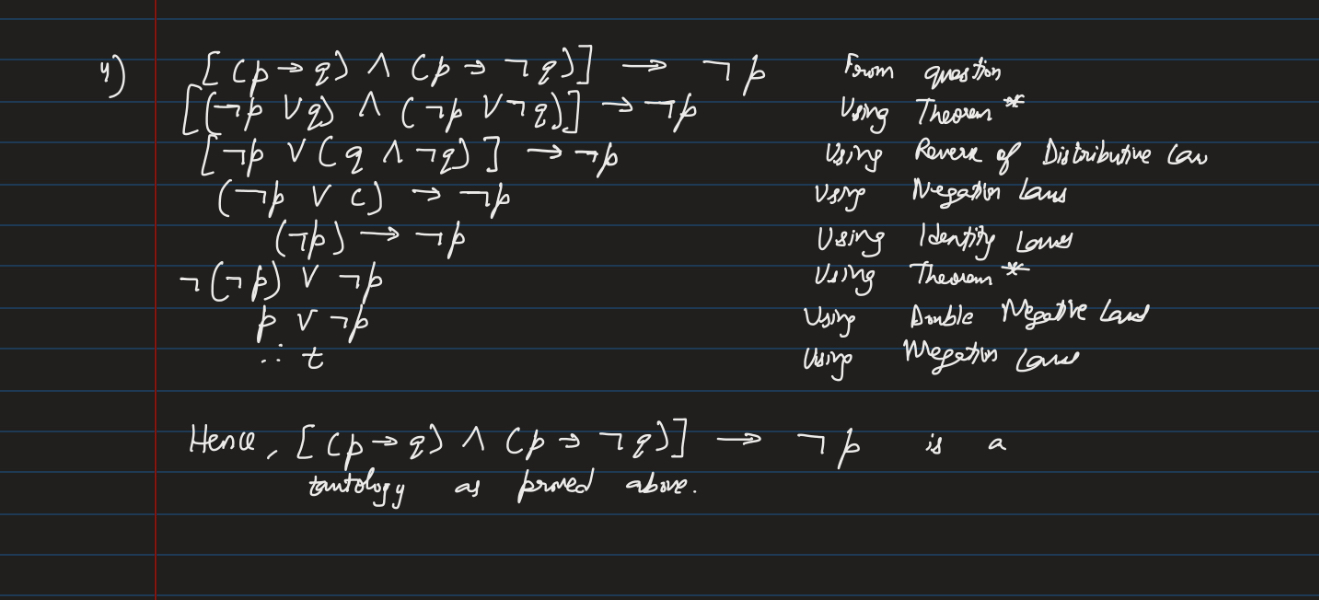 4) [(p → q) ∧ (p → ¬q)] → ¬p From question
[(¬p ∨ q) ∧ (¬p ∨ ¬q)] → ¬p Using Theorem *
[¬p ∨ (q ∧ ¬q)] → ¬p Using Reverse of Distributive Law
(¬p ∨ c) → ¬p Using Negation Laws
(¬p) → ¬p Using Identity Laws
¬(¬p) ∨ ¬p Using Theorem *
p ∨ ¬p Using Double Negative Laws
∴ t Using Negation Laws
Hence, [(p → q) ∧ (p → ¬q)] → ¬p is a
tautology as proved above.